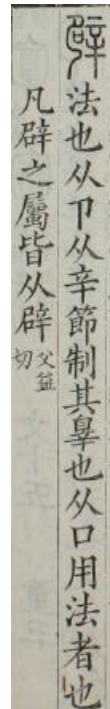 辟法也从卩从辛節制其辠也从口用法者也
凡辟之屬皆从辟父益切